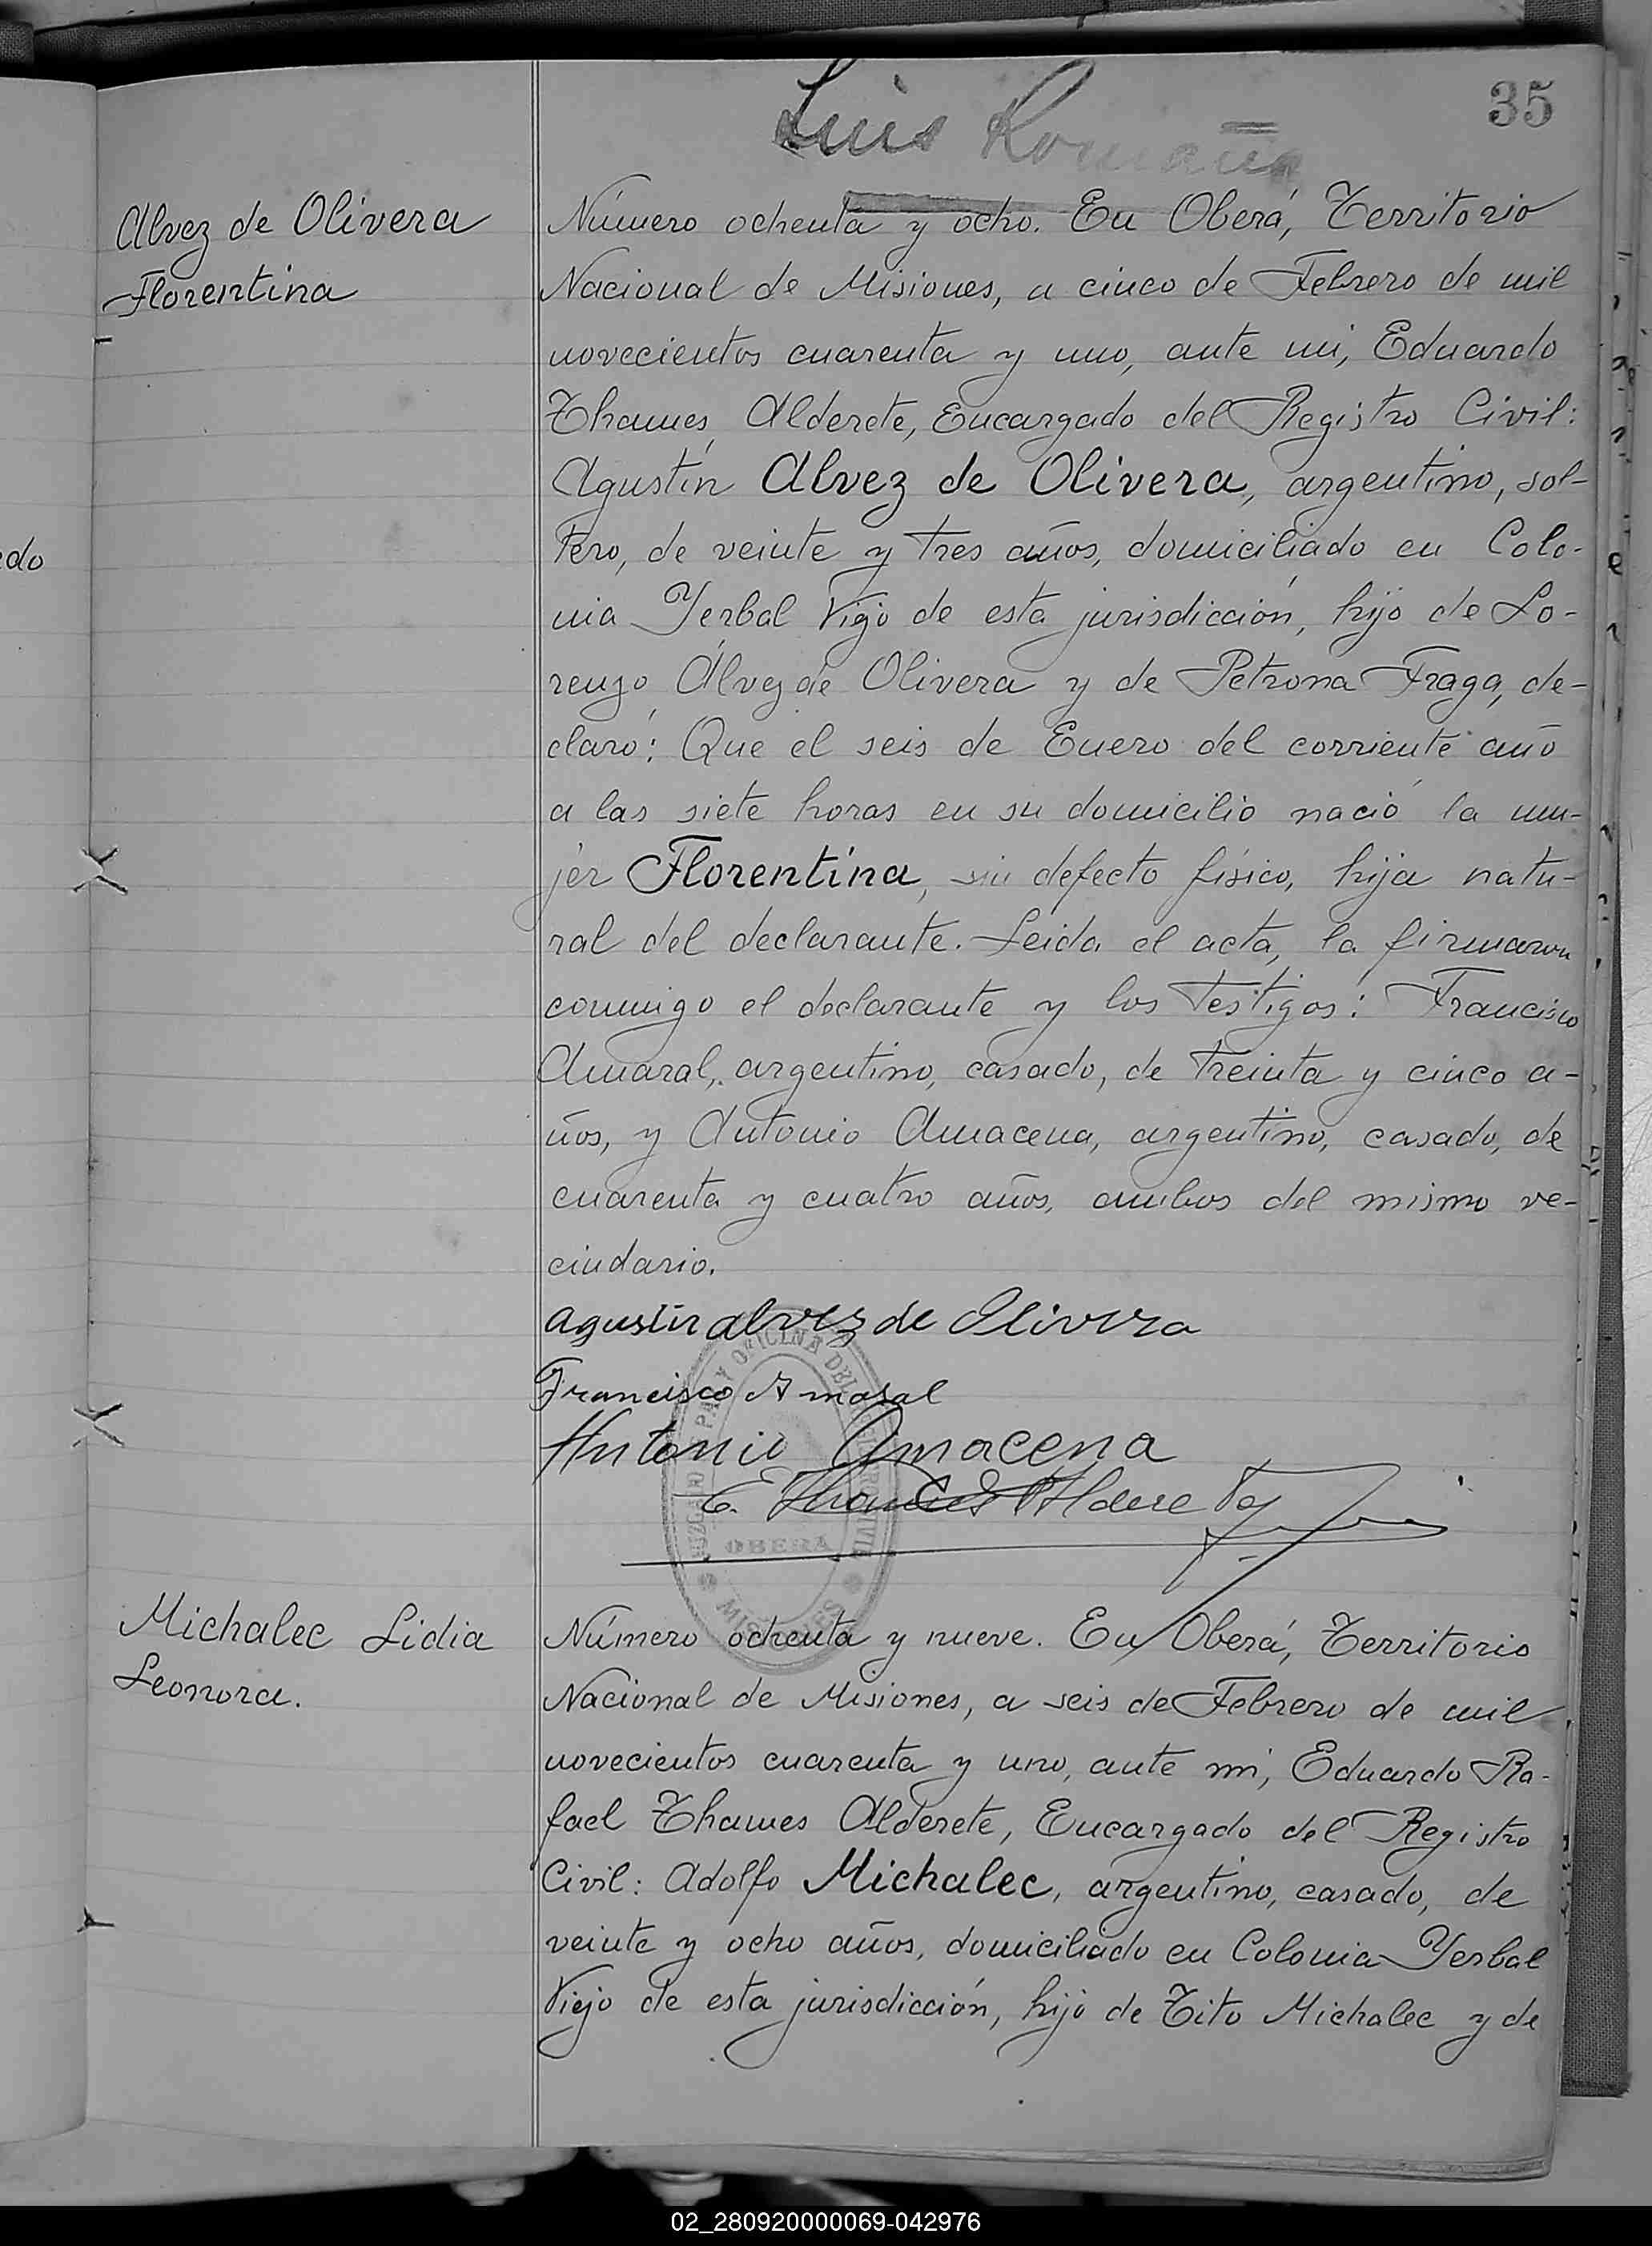 35
Luis Romaña
Alvez de Olivera
Florentina
Número ochenta y ocho. En Oberá, Territorio
Nacional de Misiones, a cinco de Febrero de mil
novecientos cuarenta y uno, ante mi, Eduardo
Thames Alderete, Encargado del Registro Civil:
Agustín Alvez de Olivera, argentino, sol-
tero, de veinte y tres años, domiciliado en Colo-
nia Yerbal Viejo de esta jurisdicción, hijo de Lo-
renzo Alvez de Olivera y de Petrona Fraga, de-
claró: Que el seis de Enero del corriente año
a las siete horas en su domicilio nació la mu-
jer Florentina, sin defecto físico, hija natu-
ral del declarante. Leida el acta, la firmaron
conmigo el declarante y los testigos: Francisco
Amaral, argentino, casado, de treinta y cinco a-
ños, y Antonio Amacena, argentino, casado, de
cuarenta y cuatro años, ambos del mismo ve-
cindario.
Agustin alvez de Olivera
Francisco Amaral
Antonio Amacena
E. Thames Alderete
JUZGADO DE PAZ Y OFICINA DEL REGISTRO CIVIL
OBERA
MISIONES
Michalec Lidia
Leonora.
Número ochenta y nueve. En Oberá, Territorio
Nacional de Misiones, a seis de Febrero de mil
novecientos cuarenta y uno, ante mi, Eduardo Ra-
fael Thames Alderete, Encargado del Registro
Civil: Adolfo Michalec, argentino, casado, de
veinte y ocho años, domiciliado en Colonia Yerbal
Viejo de esta jurisdicción, hijo de Tito Michalec y de
do
02_280920000069-042976